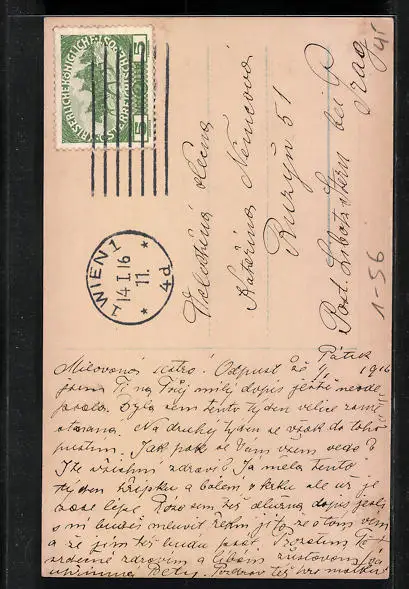 KAISERLICHE KÖNIGLICHE ÖSTERREICHISCHE POST
5 5
WIEN 1
14.I.16
11
4d
Velectěná slečna
Kateřina Němcová
Ruzyň 51
Post. Libotz Stern bei Prag
1-56
Pátek
1916
Milovaná sestro! Odpusť že
jsem Ti na Tvůj milý dopis ještě neode
psala. Byla sem tento týden velice zamě
stnana. Na druhý týden se však do toho
pustím. Jak pak se Vám všem vede?
Jste všichni zdraví? Já měla tento
týden chřipku a bolení v krku ale už je
zase lépe. sem též dlužna dopis jestli
s ní budeš mluvit řekni jí to že o tom vím
a že jim též budu psát. Pozdravem Tě
srdečně zdravím a líbám zůstávám
upřímná Bety. Pozdrav též